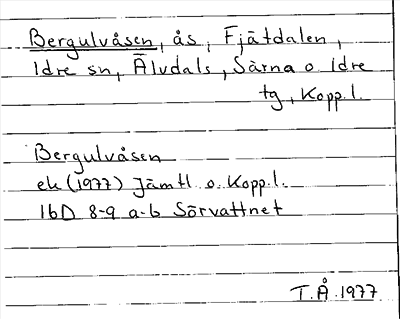 Bergulvåsen, ås, Fjätdalen,
Idre sn, Älvdals, Särna o. Idre
tg, Kopp.l.
Bergulvåsen
ek (1977) Jämtl o. Kopp.l.
16D 8-9 a-b Sörvattnet
T.Å. 1977